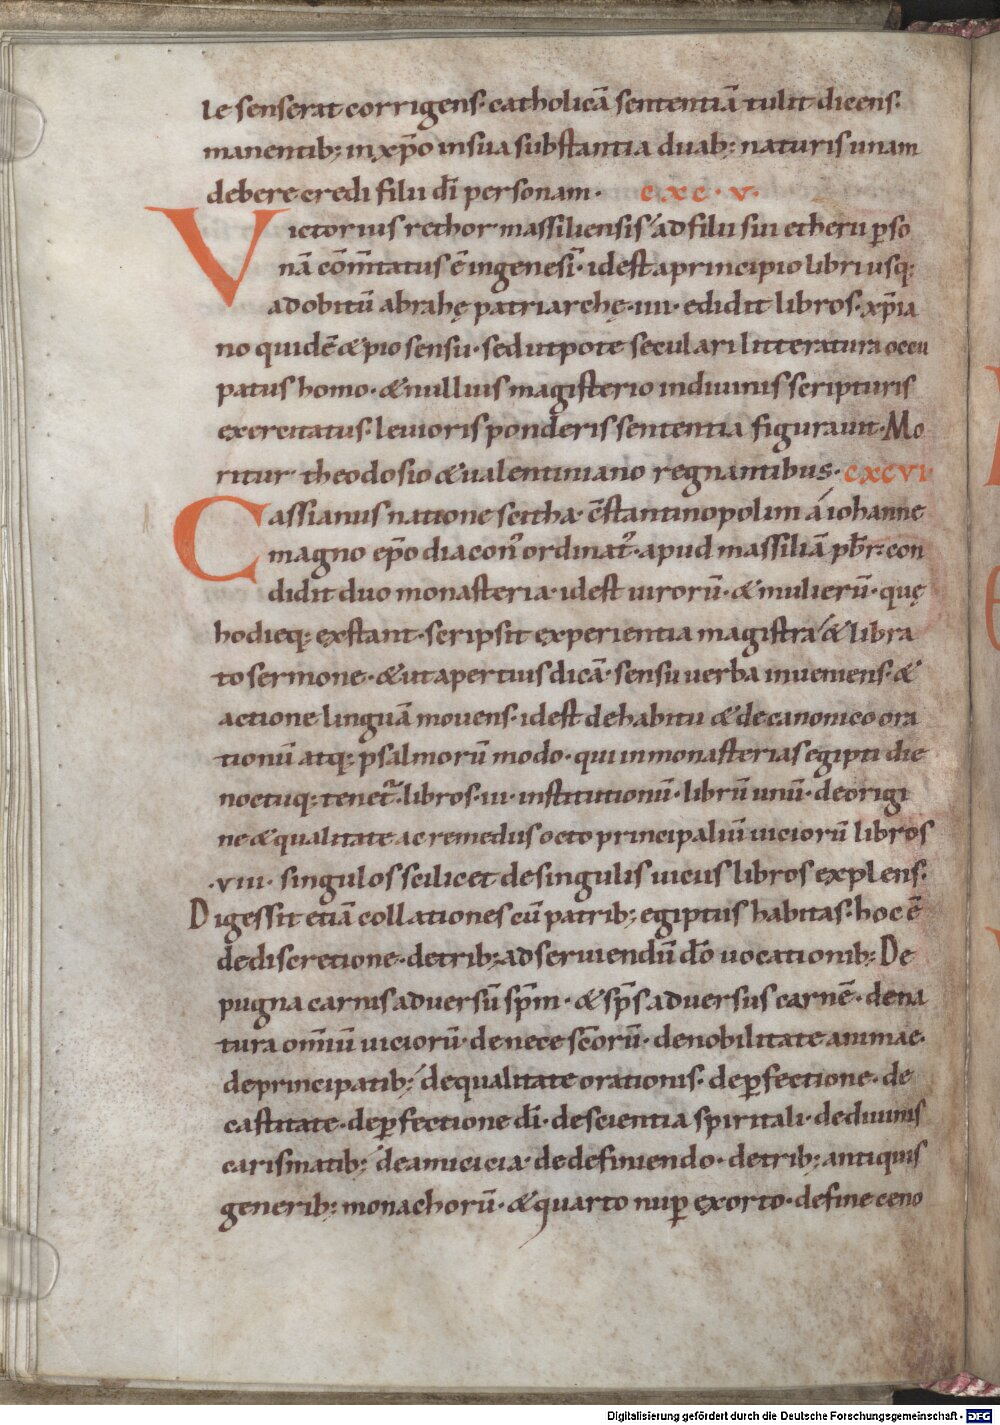 le senserat corrigens· catholicā sententiā tulit dicens·
manentib; in xp̄o in sua substantia duab; naturis unam
debere credi filii dī personam· cxc·v·
Victorius rethor massiliensis ad filii sui etherii ꝑso
nā cōm̄tatus ē in genesī· id est a principio libri usq;
ad obitū abrahę patriarchę· iiii· edidit libros· xp̄ia
no quidē & pio sensu· sed utpote seculari litteratura occu
patus homo· & nullius magisterio in diuinis scripturis
exercitatus· leuioris ponderis sententia figurauit· Mo
ritur theodosio & ualentiniano regnantibus· cxcvi
Cassianus natione scitha· c̄stantinopolim a iohanne
magno ep̄o diacon᾽ ordinat᾽· apud massiliā pb̄r· con
didit duo monasteria· id est uirorū· & mulierū· quę
hodieq; exstant· scripsit experientia magistra & libra
to sermone· & ut apertius dicā· sensu uerba inueniens· &
actione linguā mouens· id est de habitu & de canonico ora
tionū atq; psalmorū modo· qui in monasterias egipti die
noctuq; tenet᷑· libros· iii· institutionū· librū unū· de origi
ne & qualitate ac remediis octo principaliū uiciorū libros
·viii· singulos scilicet de singulis uiciis libros explens·
Digessit etiā collationes cū patrib; egiptiis habitas· hoc ē
de discretione· de trib; ad seruiendū dō uocationib; De
pugna carnis aduersū sp̄m· & sp̄s aduersus carnē· de na
tura om̄iū uiciorū· de nece sc̄orū· de nobilitate animae·
de principatib; de qualitate orationis· de ꝑfectione· de
castitate· de ꝑfectione dī· de scientia spiritali· de diuinis
carismatib; de amicicia· de definiendo· de trib; antiquis
generib; monachorū· & quarto nuꝑ exorto· de fine ceno
Digitalisierung gefördert durch die Deutsche Forschungsgemeinschaft - DFG